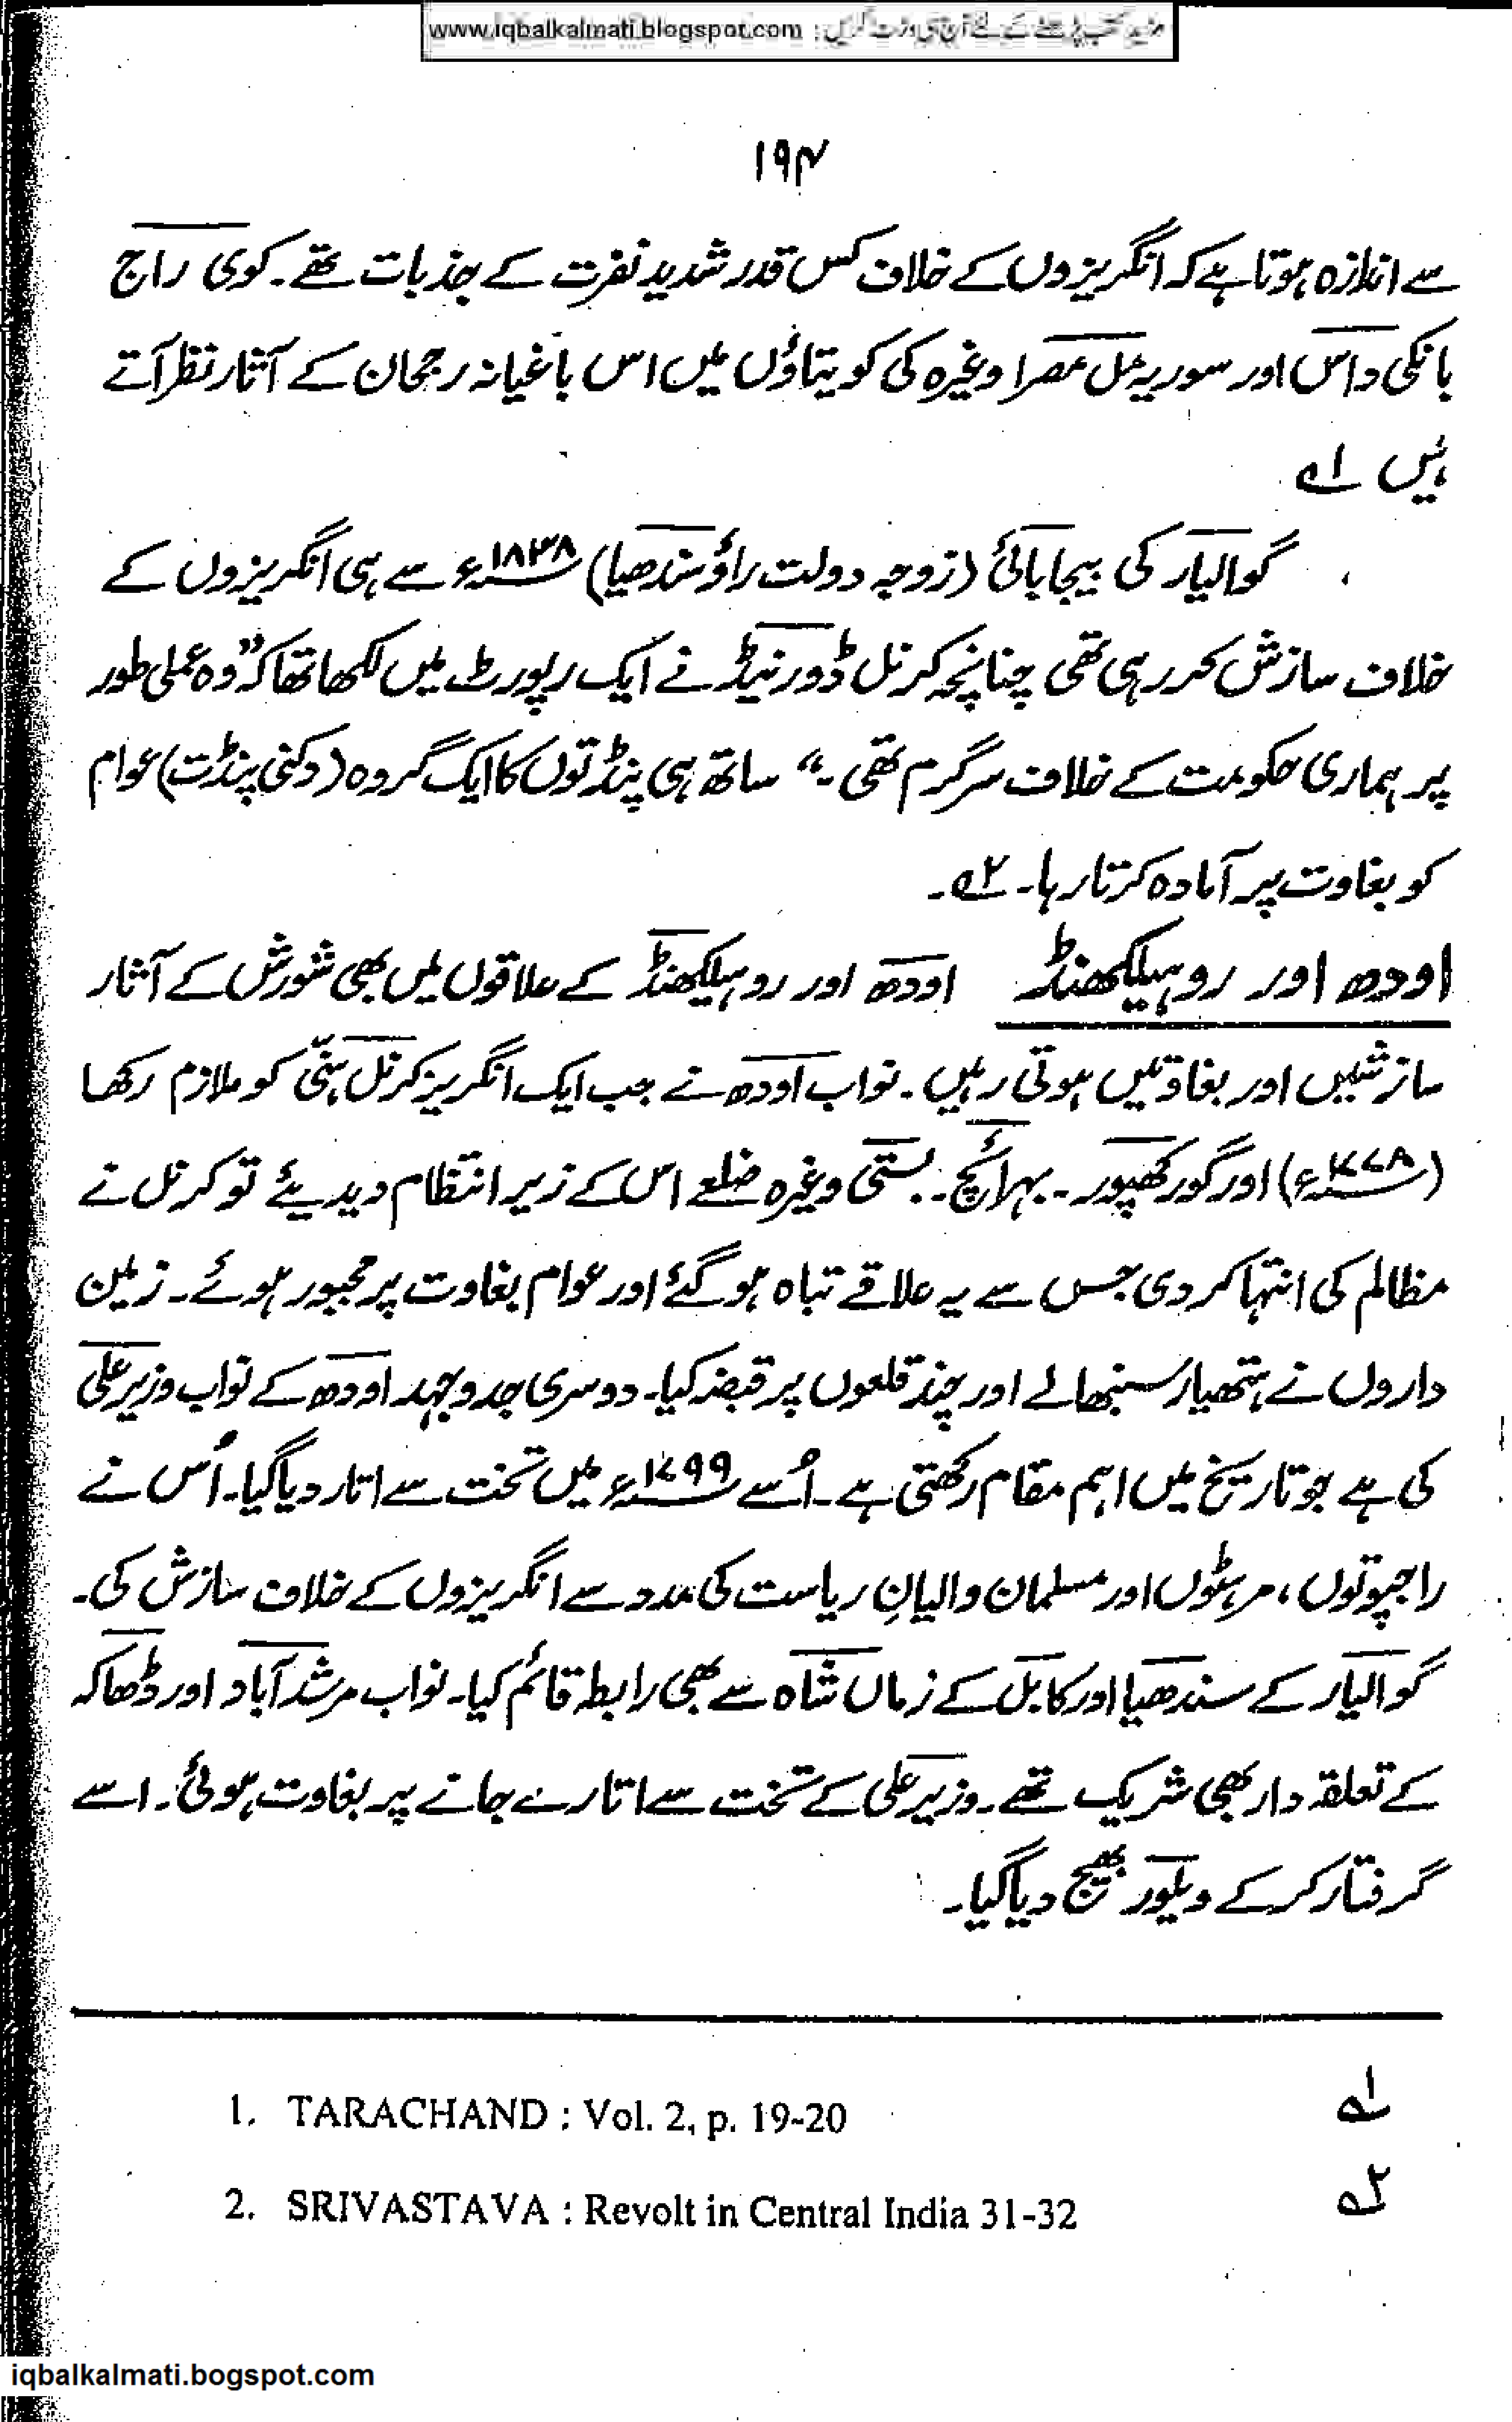 مزید کتب پڑھنے کے لئے آج ہی وزٹ کریں : www.iqbalkalmati.blogspot.com
۱۹۴
سے اندازہ ہوتا ہے کہ انگریزوں کے خلاف کس قدر شدید نفرت کے جذبات تھے۔ کوی راج
بانکی داس اور سوریہ مل مصرا وغیرہ کی کویتاؤں میں اس باغیانہ رجحان کے آثار نظر آتے
ہیں ۱؎
گوالیار کی بیجابائی (زوجہ دولت راؤ سندھیا) ۱۸۳۸ء سے ہی انگریزوں کے
خلاف سازش کررہی تھی چنانچہ کرنل ڈورنیڈ نے ایک رپورٹ میں لکھا تھا کہ ”وہ عملی طور
پر ہماری حکومت کے خلاف سرگرم تھی۔“ ساتھ ہی پنڈتوں کا ایک گروہ (دکنی پنڈت) عوام
کو بغاوت پر آمادہ کرتا رہا۔ ۲؎۔
اودھ اور روہیلکھنڈ اودھ اور روہیلکھنڈ کے علاقوں میں بھی شورش کے آثار
سازشیں اور بغاوتیں ہوتی رہیں۔ نواب اودھ نے جب ایک انگریز کرنل ہنّی کو ملازم رکھا
(۱۷۷۸ء) اور گورکھپور۔ بہرائچ۔ بستی وغیرہ ضلعے اس کے زیر انتظام دیدیئے تو کرنل نے
مظالم کی انتہا کر دی جس سے یہ علاقے تباہ ہو گئے اور عوام بغاوت پر مجبور ہوئے۔ زمین
داروں نے ہتھیار سنبھالے اور چند قلعوں پر قبضہ کیا۔ دوسری جدوجہد اودھ کے نواب وزیر علی
کی ہے جو تاریخ میں اہم مقام رکھتی ہے۔ اُسے ۱۷۹۹ء میں تخت سے اتار دیا گیا۔ اُس نے
راجپوتوں، مرہٹوں اور مسلمان والیانِ ریاست کی مدد سے انگریزوں کے خلاف سازش کی۔
گوالیار کے سندھیا اور کابل کے زماں شاہ سے بھی رابطہ قائم کیا۔ نواب مرشدآباد اور ڈھاکہ
کے تعلقہ دار بھی شریک تھے۔ وزیر علی کے تخت سے اتارے جانے پر بغاوت ہوئی۔ اسے
گرفتار کر کے ویلور بھیج دیا گیا۔
۱؎ 1. TARACHAND : Vol. 2, p. 19-20
۲؎ 2. SRIVASTAVA : Revolt in Central India 31-32
iqbalkalmati.bogspot.com